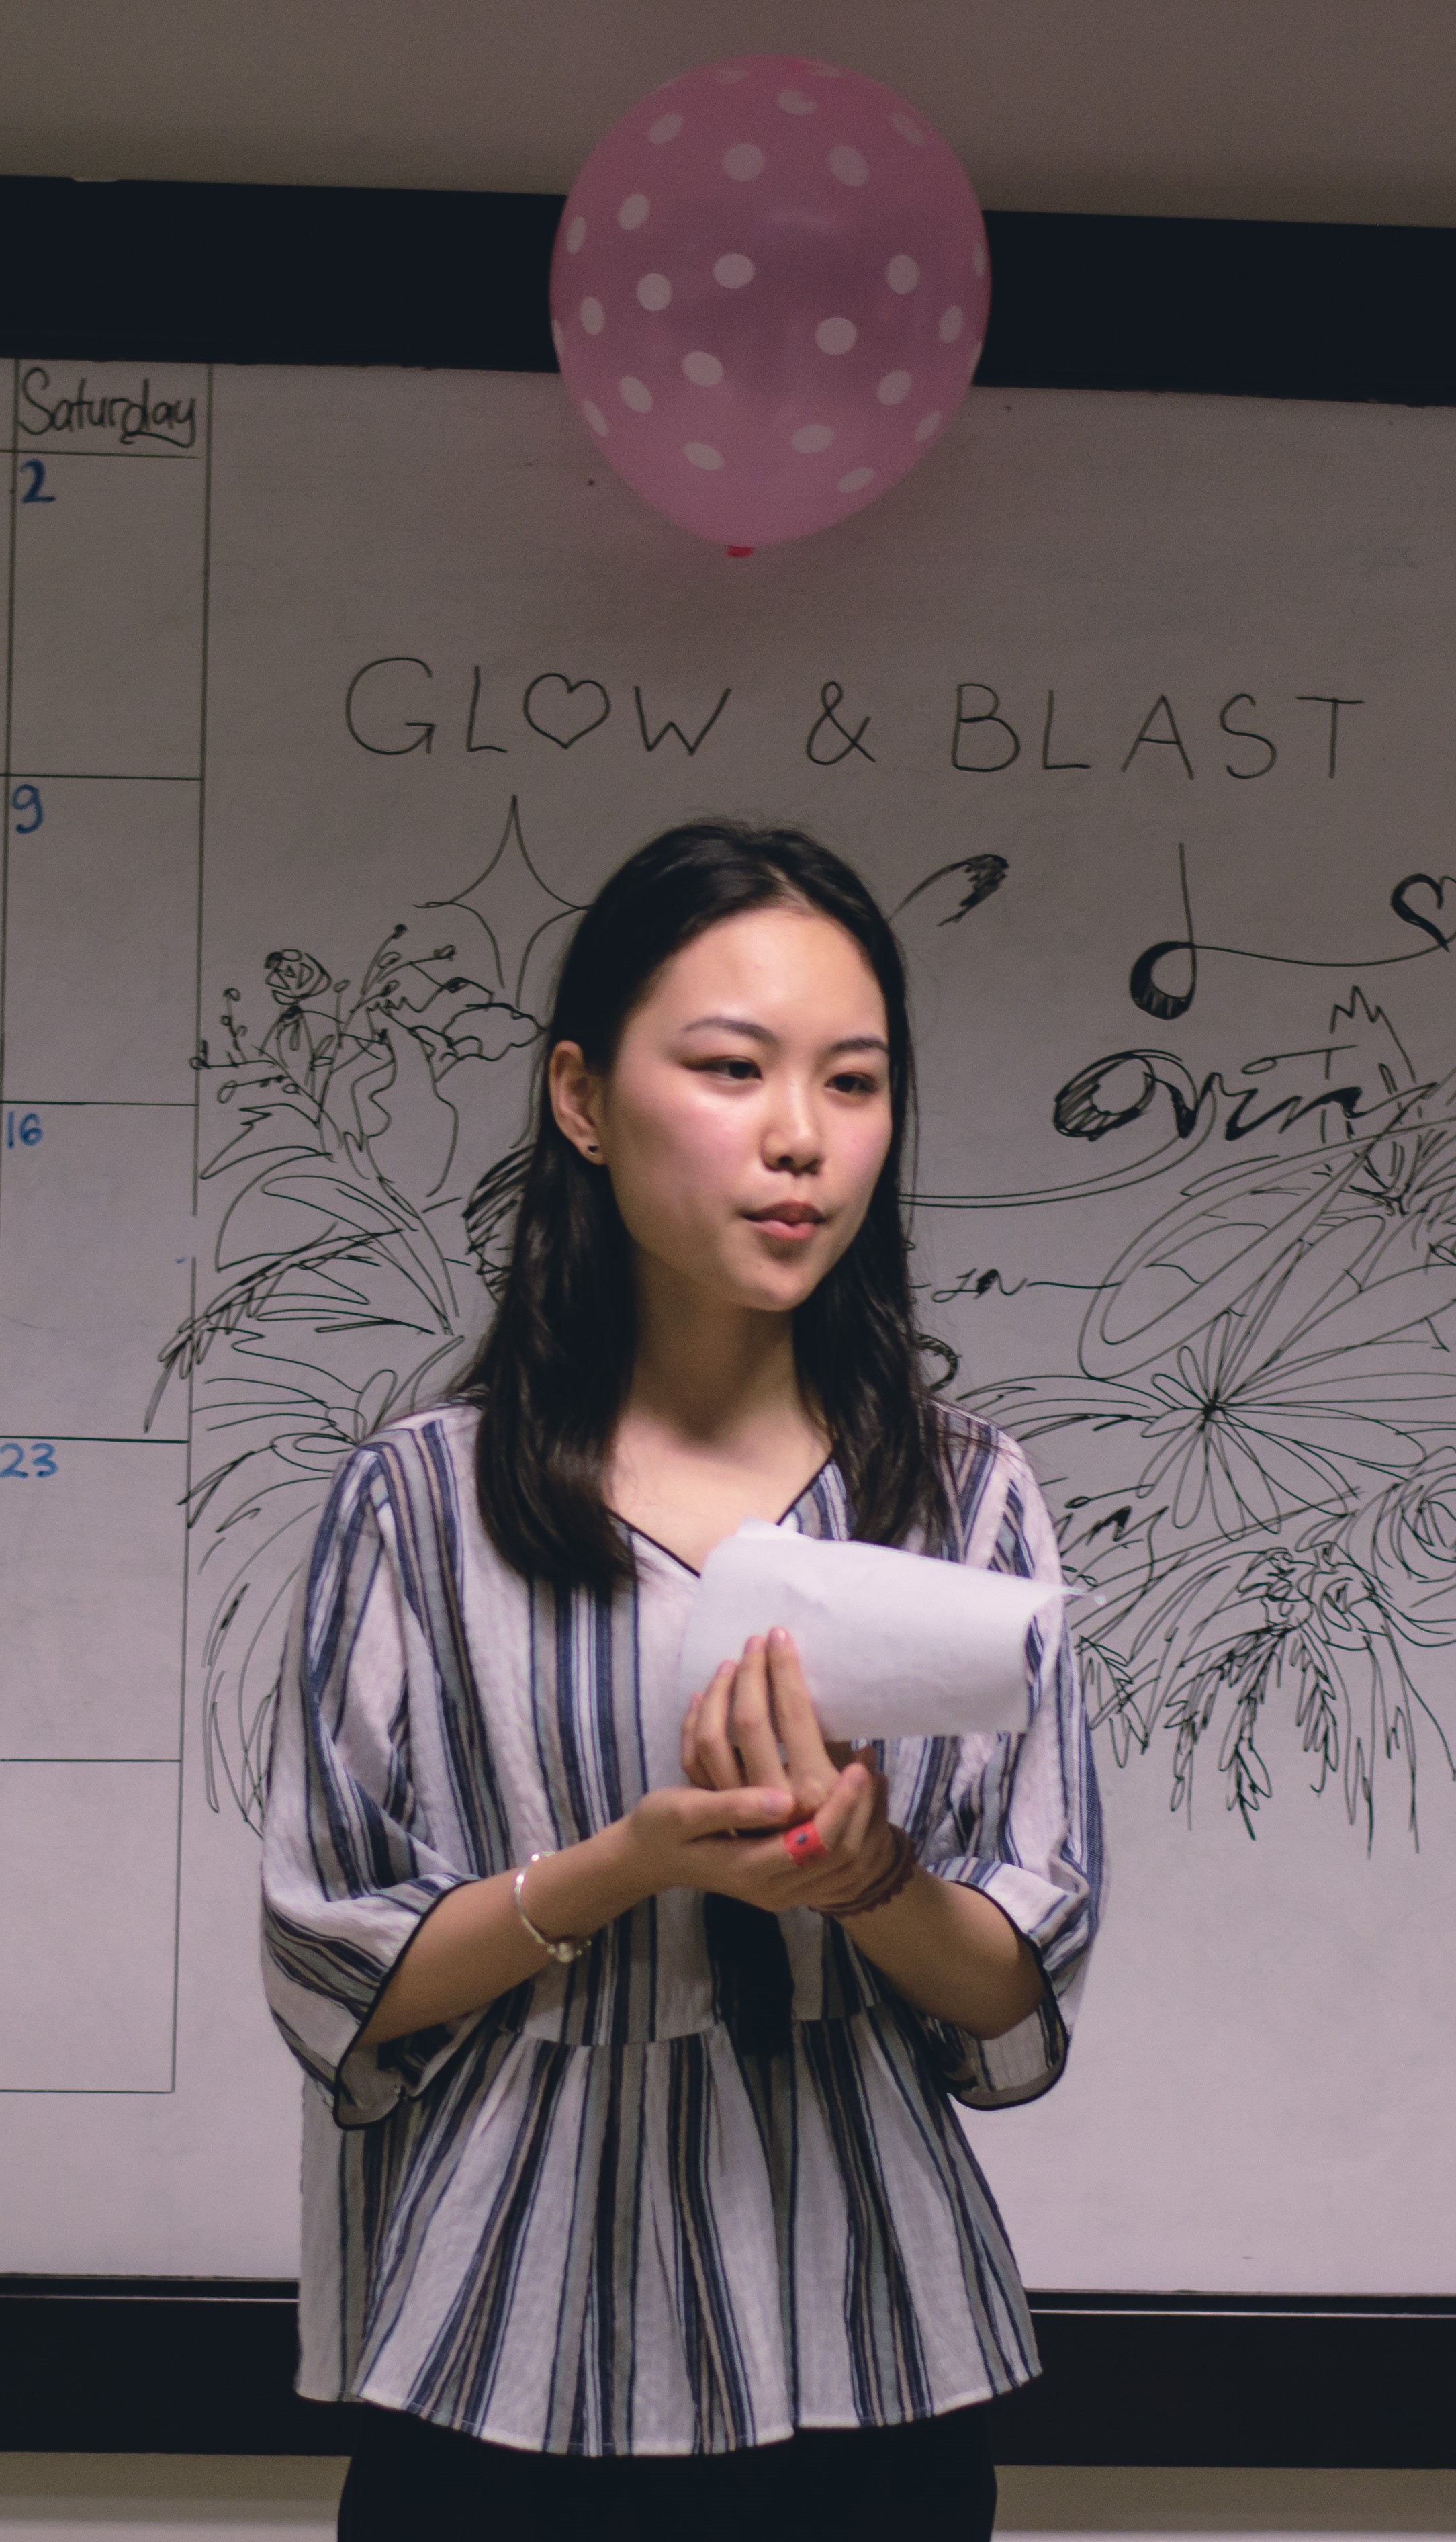 Saturday
2
9
16
23
GLOW & BLAST
in